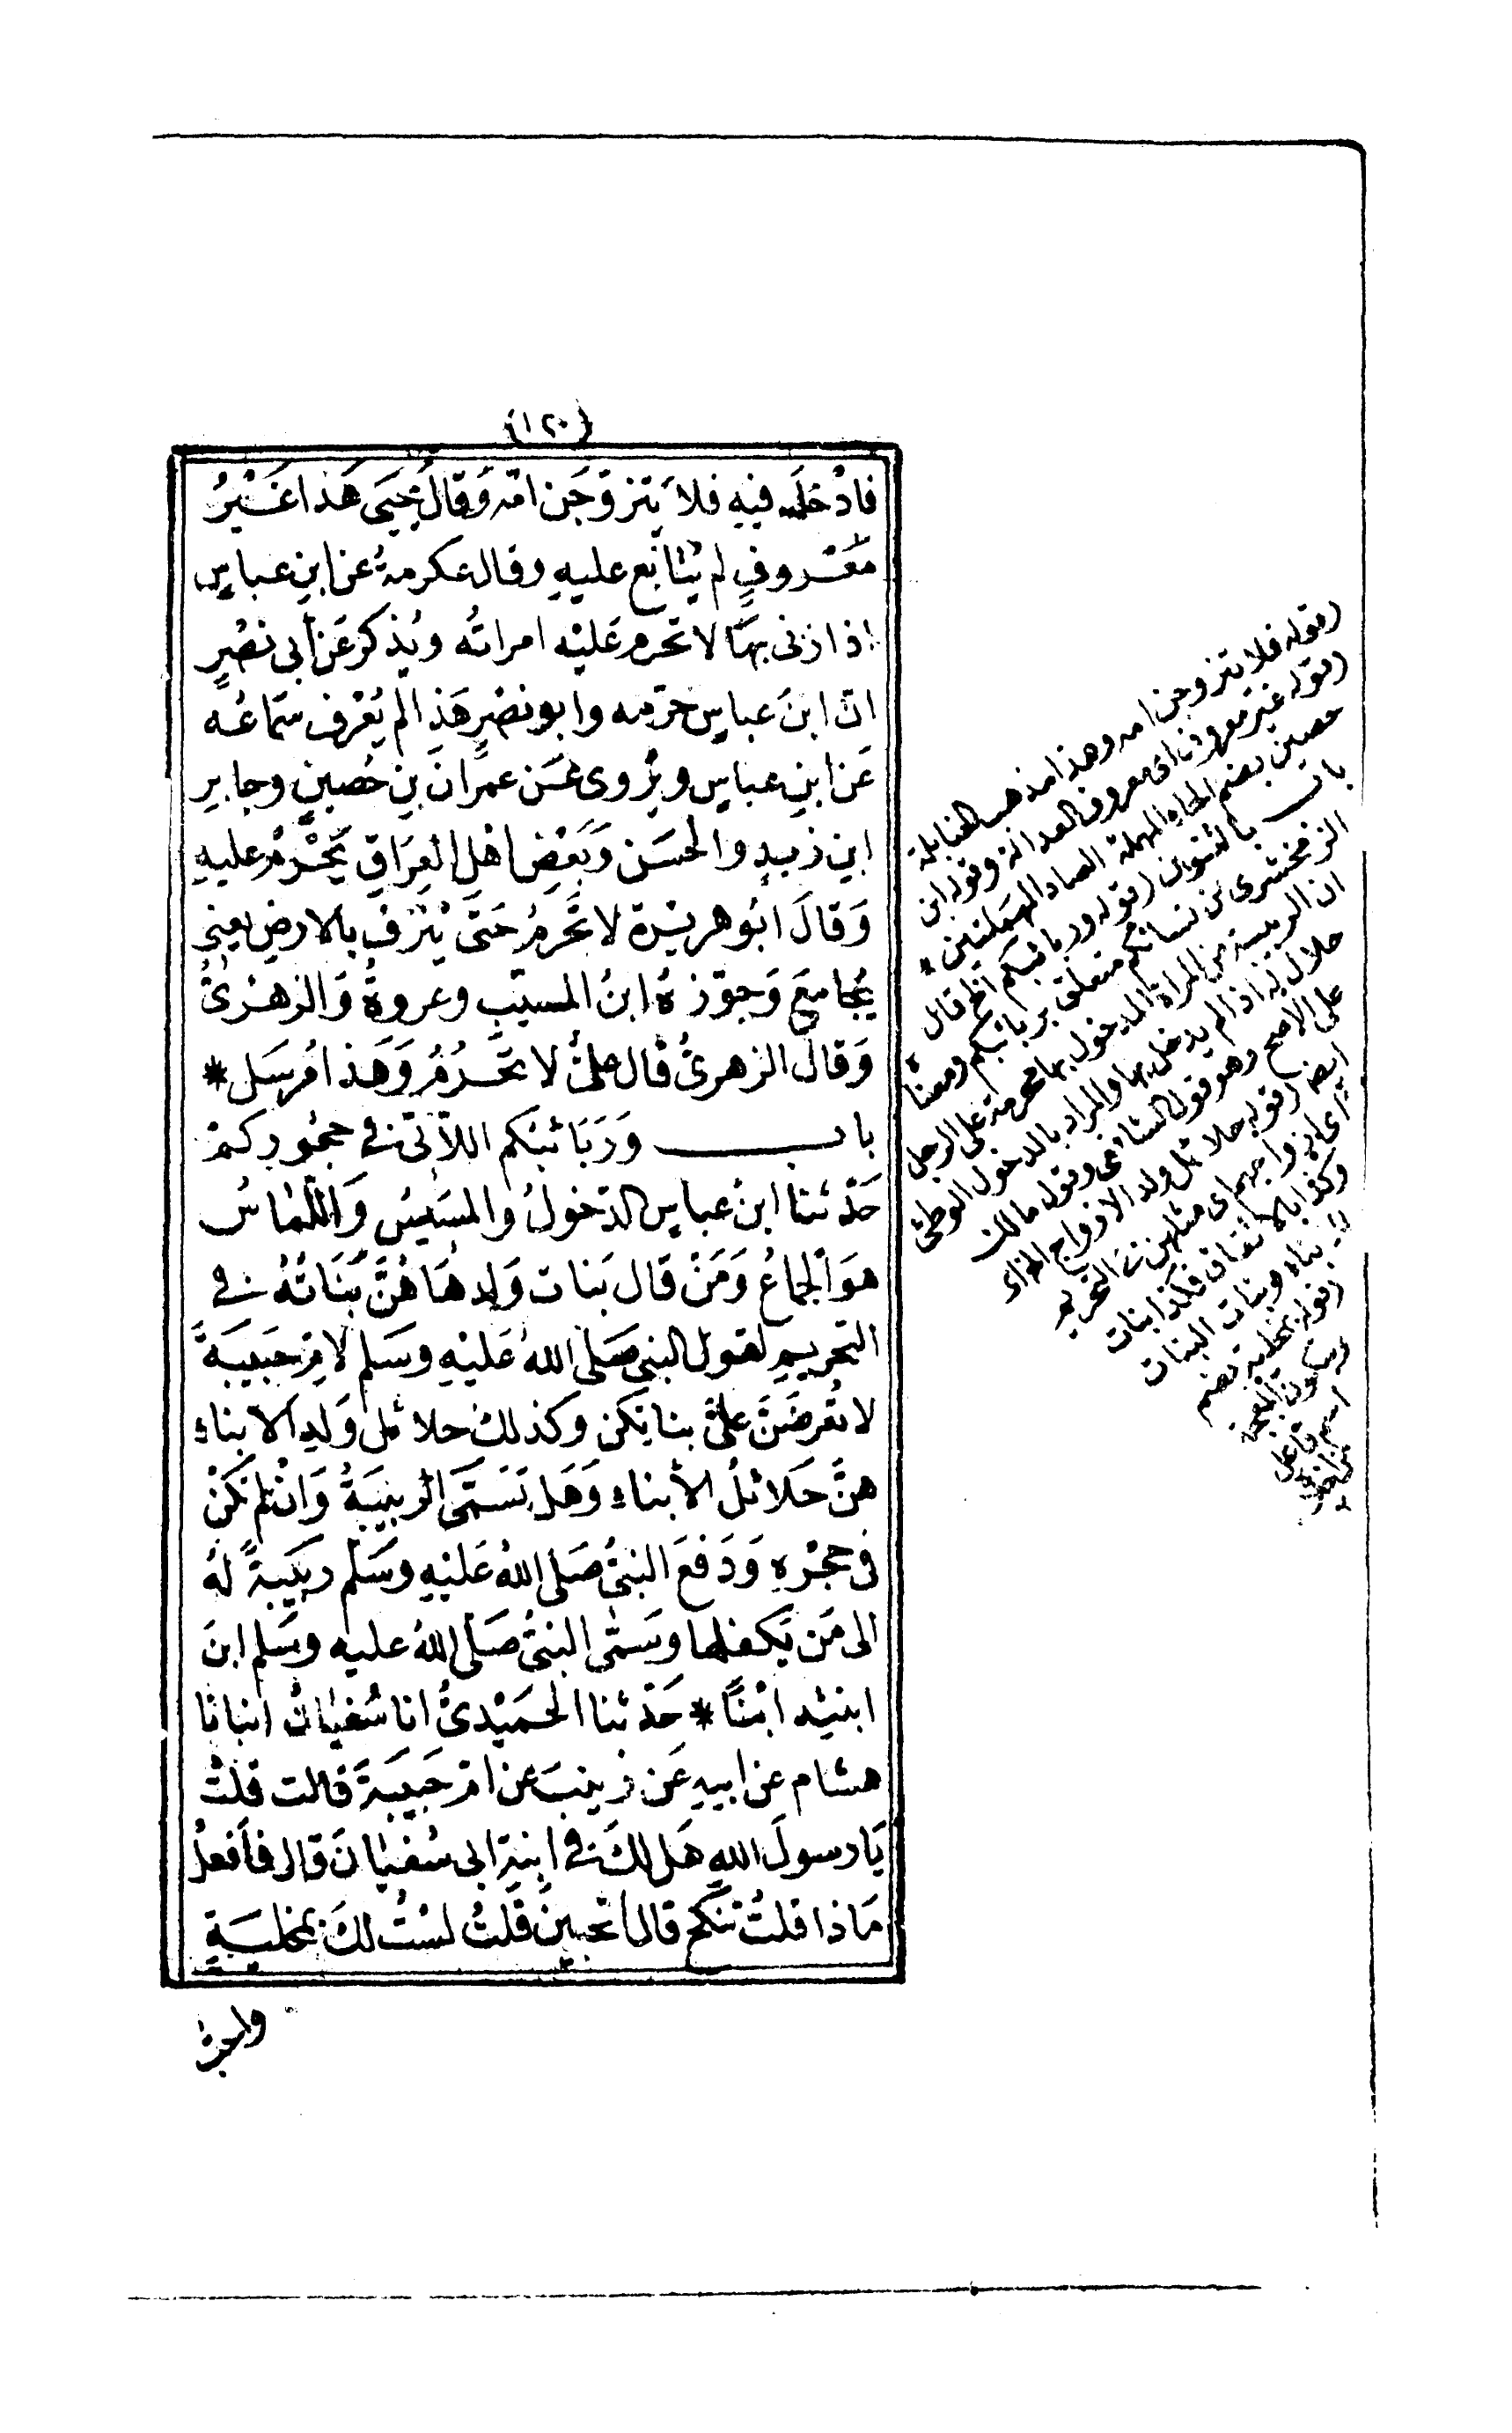 (١٢٠)
فادْخَلَه فيهِ فلا يَتزوّجَن امّه وَقالَ يحيَى هَذا غَيْرُ
مَعْروفٍ لم يُتابَع عليهِ وقال عكرمةُ عن ابنِ عباسٍ
اذا زنى بهَا لا تحرم عَليْه امراتُه ويُذكر عَن أبى نصْرٍ
انّ ابنَ عباسٍ حرّمه وابو نصْرٍ هَذا لم يُعْرف سَمَاعُه
عَن ابنِ عباسٍ ويُروى عَن عمرانَ بنِ حُصينٍ وجابرِ
ابنِ زيدٍ والحسَن وَبَعْضِ اهْلِ العِرَاقِ تَحْرُمُ عليهِ
وَقالَ ابُو هريْرة لا تَحْرمُ حَتّى يُلْزَقَ بالارضِ يعنى
يُجامِعَ وَجوّزهُ ابنُ المسيّبِ وعروةُ وَالزهْرىُّ
وَقالَ الزهرىُّ قال علىٌّ لا تحْرُمُ وَهَذا مُرسَل *
باب وَرَبَائبُكم اللاّتى فى حجُورِكمْ
حَدّثنا ابنُ عباسٍ الدّخولُ والمسَيسُ وَاللّماسُ
هوَ الجماعُ وَمَنْ قال بَنات وَلدِهَا هُنَّ بَنَاتُهُ فى
التحريمِ لقول النبى صَلى اللهُ عَليْهِ وسَلم لامّ حَبيبَةَ
لا تُعْرضَنّ علىَّ بناتِكن وكذلكَ حلائل وَلدِ الابناءِ
هنَّ حَلائلُ الأبناءِ وَهَل تسَمّى الربيبَةُ وَانْ لم تكنْ
فى حجْرِهِ وَدَفعَ النبىُّ صَلى اللهُ عَليْهِ وسَلم ربيبَةً لهُ
الى مَن يَكفلها وسَمّى النبىُّ صَلى اللهُ عليه وسَلم ابنَ
ابنتِه ابْنًا * حَدّثنا الحمَيْدىُّ انا سُفيانُ انبانا
هشام عن ابيهِ عَن زينبَ عن امّ حَبيبَةَ قالت قلتُ
يَا رسولَ اللهِ هَل لكَ فى ابنةِ ابى سُفيانَ قال فأفعلُ
مَاذا قلتُ تنكحُ قال أتحبينَ قلتُ لسْتُ لكَ بمخليَةٍ
واحبّ
(قوله فلا يتزوجن امه وهذا مذهب الحنابلة
(قوله غير معروف اى معروف العدالة وقوله ابن
حصين بضم الحاء المهملة الصاد المهملتين *
باب بالتنوين (قوله وربائبكم الخ قال
الزمخشرى من نسائكم متعلق بربائبكم ومعناه
ان الربيبة من المراة المدخول بها محرمة على الرجل
حلال له اذا لم يدخل بها والمراد بالدخول الوطئ
على الاصح وهو قول الشافعى وقول مالك
(قوله حلائل ولد الابناء اى ازواجهم اى مثلهن فى التحريم
وكذا بالاتفاق فكذا بنات
الابناء وبنات البنات
(قوله بمخلية بضم
وسكون المعجمة
اسم فاعل